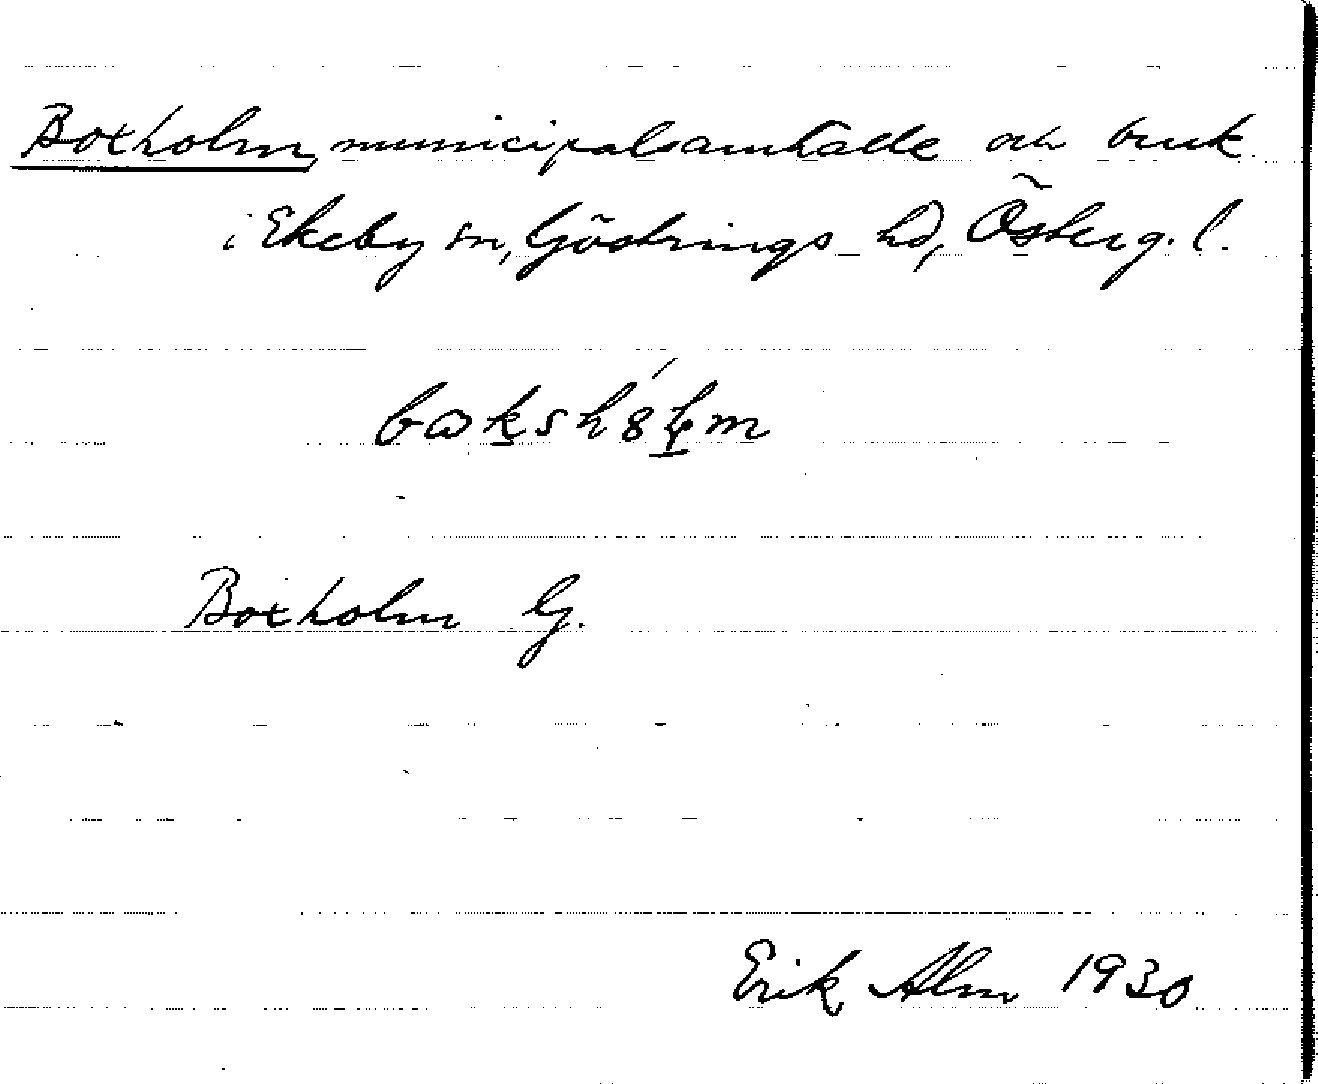 Boxholm, municipalsamhälle och bruk
i Ekeby sn, Göstrings hd, Österg. l.
Boxholm G.
Erik Alm 1930